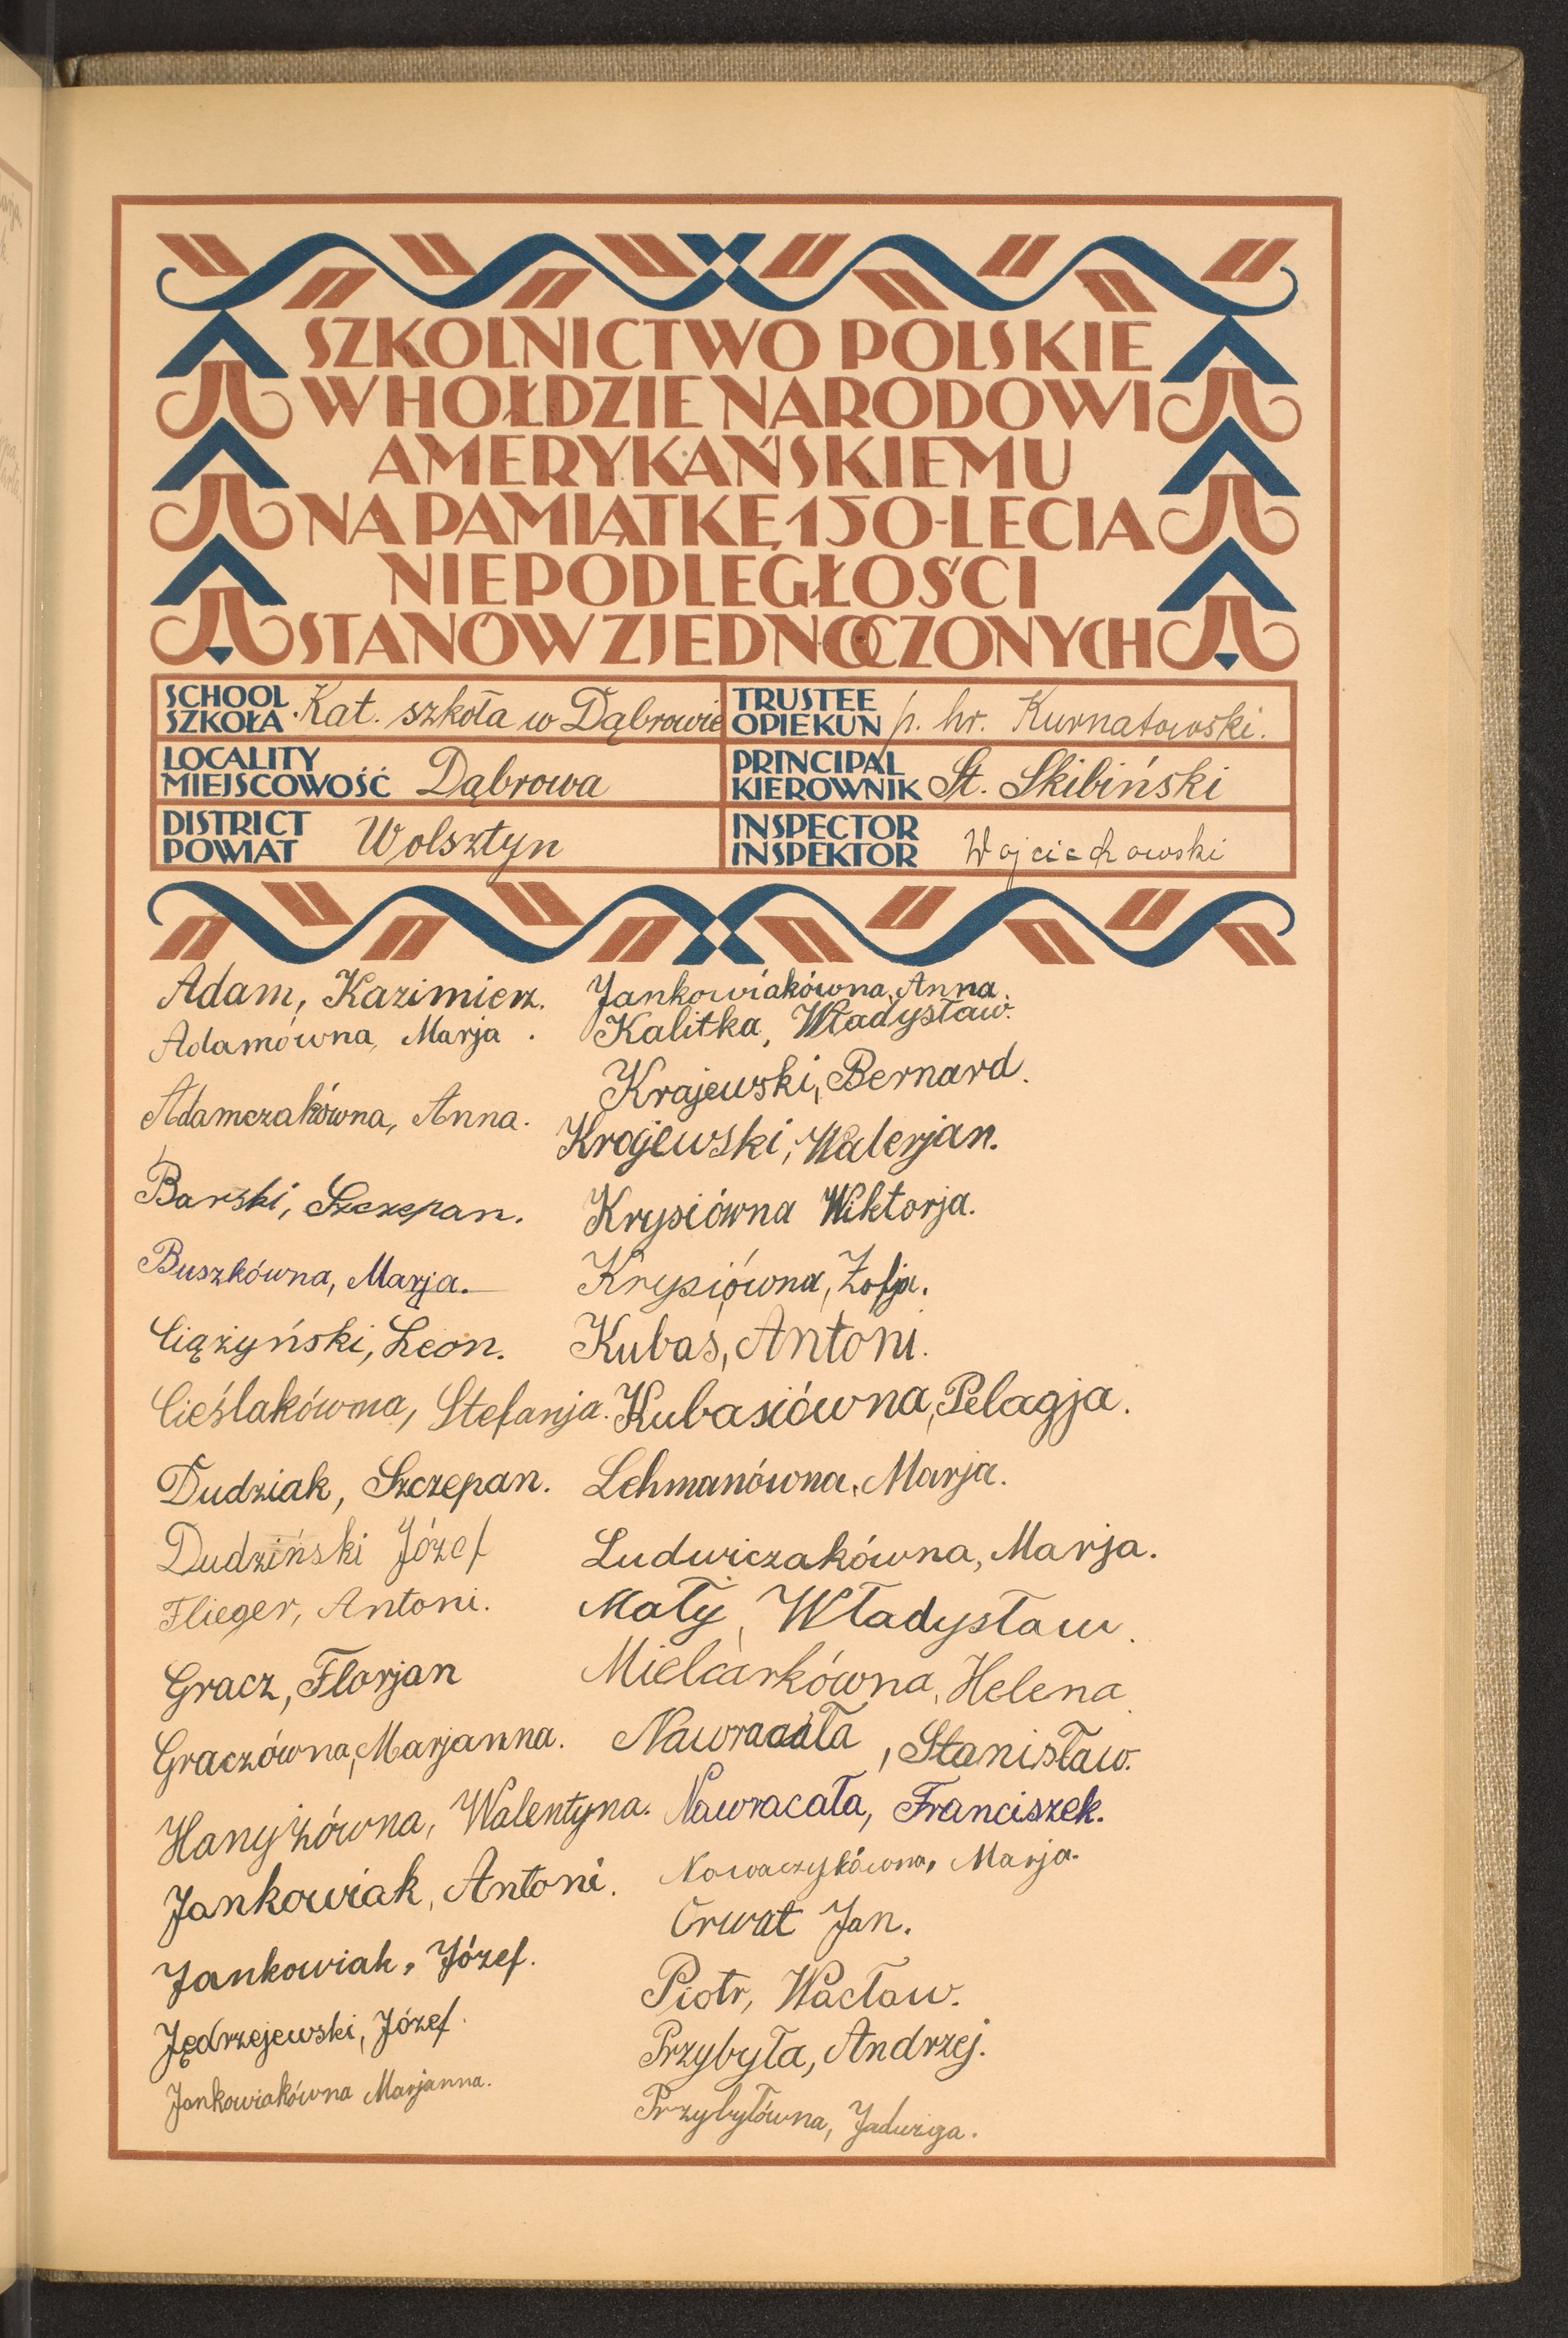 SZKOLNICTWO POLSKIE
W HOŁDZIE NARODOWI
AMERYKAŃSKIEMU
NA PAMIĄTKĘ 150-LECIA
NIEPODLEGŁOŚCI
STANÓW ZJEDNOCZONYCH
SCHOOL
SZKOŁA Kat. szkoła w Dąbrowie
TRUSTEE
OPIEKUN p. hr. Kurnatowski.
LOCALITY
MIEJSCOWOŚĆ Dąbrowa
PRINCIPAL
KIEROWNIK St. Skibiński
DISTRICT
POWIAT Wolsztyn
INSPECTOR
INSPEKTOR Wojciechowski
Adam, Kazimierz.
Adamówna, Marja.
Adamczakówna, Anna.
Barski, Szczepan.
Buszkówna, Marja.
Ciążyński, Leon.
Cieślakówna, Stefanja.
Dudziak, Szczepan.
Dudziński Józef
Flieger, Antoni.
Gracz, Florjan
Graczówna, Marjanna.
Hanyżówna, Walentyna.
Jankowiak, Antoni.
Jankowiak, Józef.
Jędrzejewski, Józef.
Jankowiakówna Marjanna.
Jankowiakówna, Anna.
Kalitka, Władysław.
Krajewski, Bernard.
Krajewski, Walerjan.
Krysiówna Wiktorja.
Krysiówna, Zofja.
Kubaś, Antoni.
Kubasiówna, Pelagja.
Lehmanówna, Marja.
Ludwiczakówna, Marja.
Mały, Władysław.
Mielcarkówna, Helena
Nawracała, Stanisław.
Nawracała, Franciszek.
Nowaczykówna, Marja.
Orwat Jan.
Piotr, Wacław.
Przybyła, Andrzej.
Przybyłówna, Jadwiga.